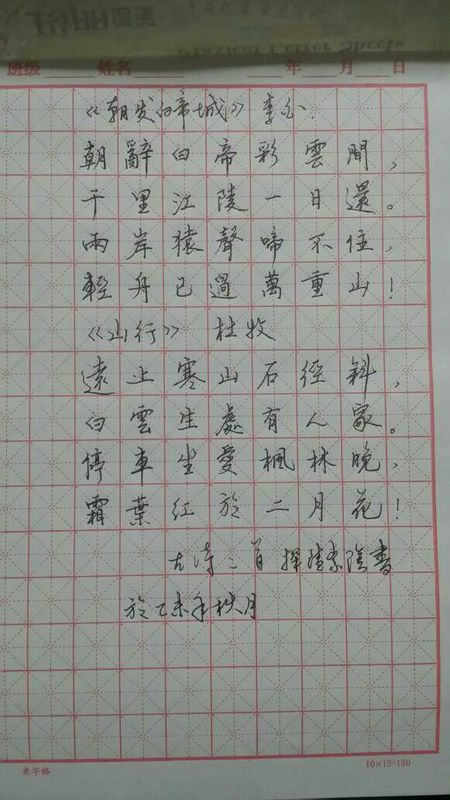 班级 姓名 年 月 日
《朝发白帝城》 李白.
朝辭白帝彩雲間,
千里江陵一日還。
兩岸猿聲啼不住,
輕舟已過萬重山!
《山行》 杜牧
遠上寒山石徑斜,
白雲生處有人家。
停車坐愛楓林晚,
霜葉紅於二月花!
古诗二首 探赜索隐書
於乙未年秋月
米字格 10×15=150